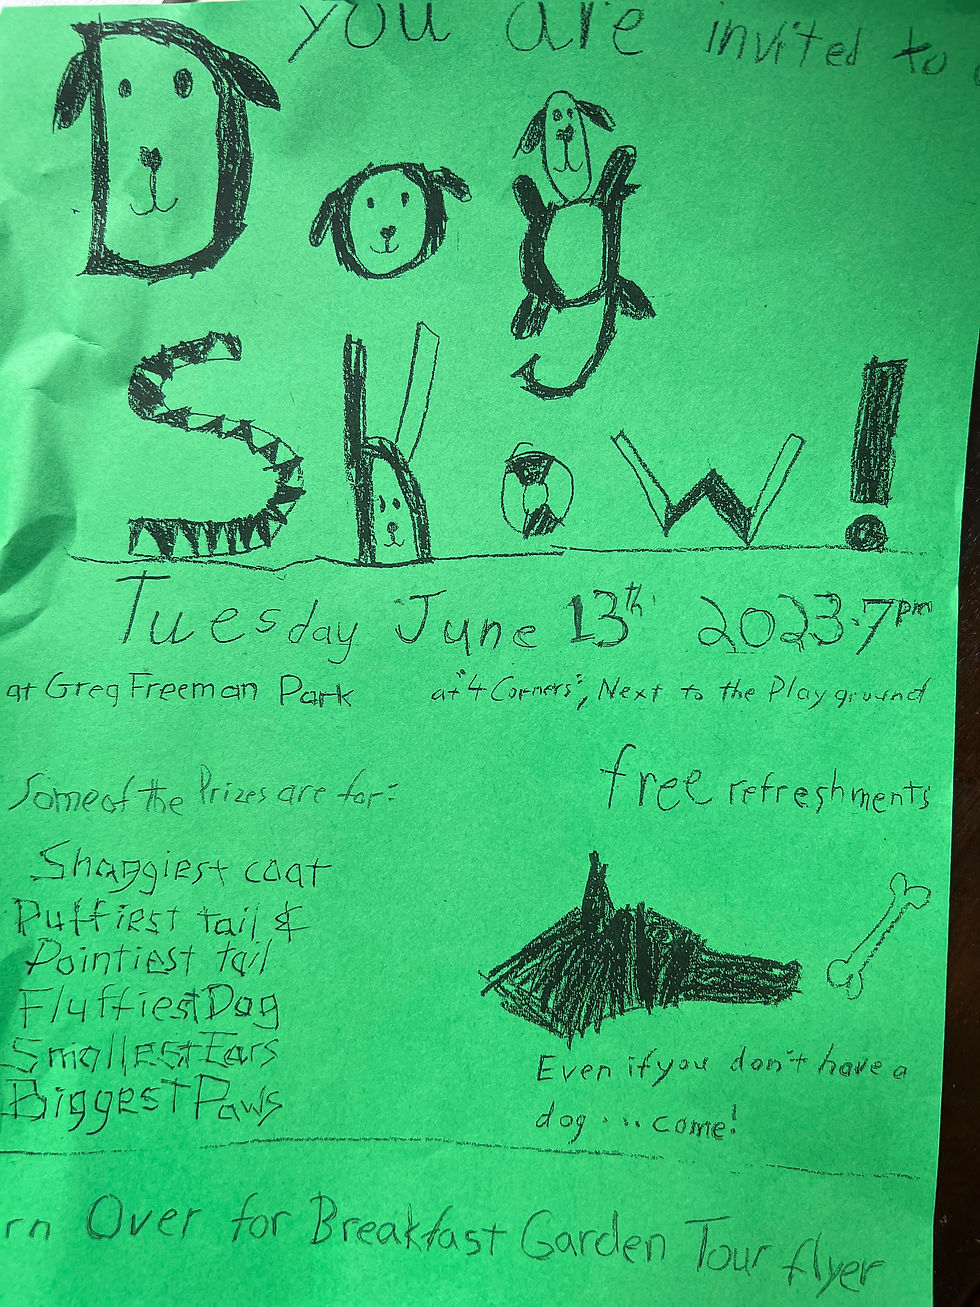 You are invited to
Dog
Show!
Tuesday June 13th 2023.7pm
at Greg Freeman Park at "4 Corners", Next to the Playground
Some of the Prizes are for:
free refreshments
Shaggiest coat
Puffiest tail &
Pointiest tail
Fluffiest Dog
Smallest Ears
Biggest Paws
Even if you don't have a
dog... come!
rn Over for Breakfast Garden Tour flyer